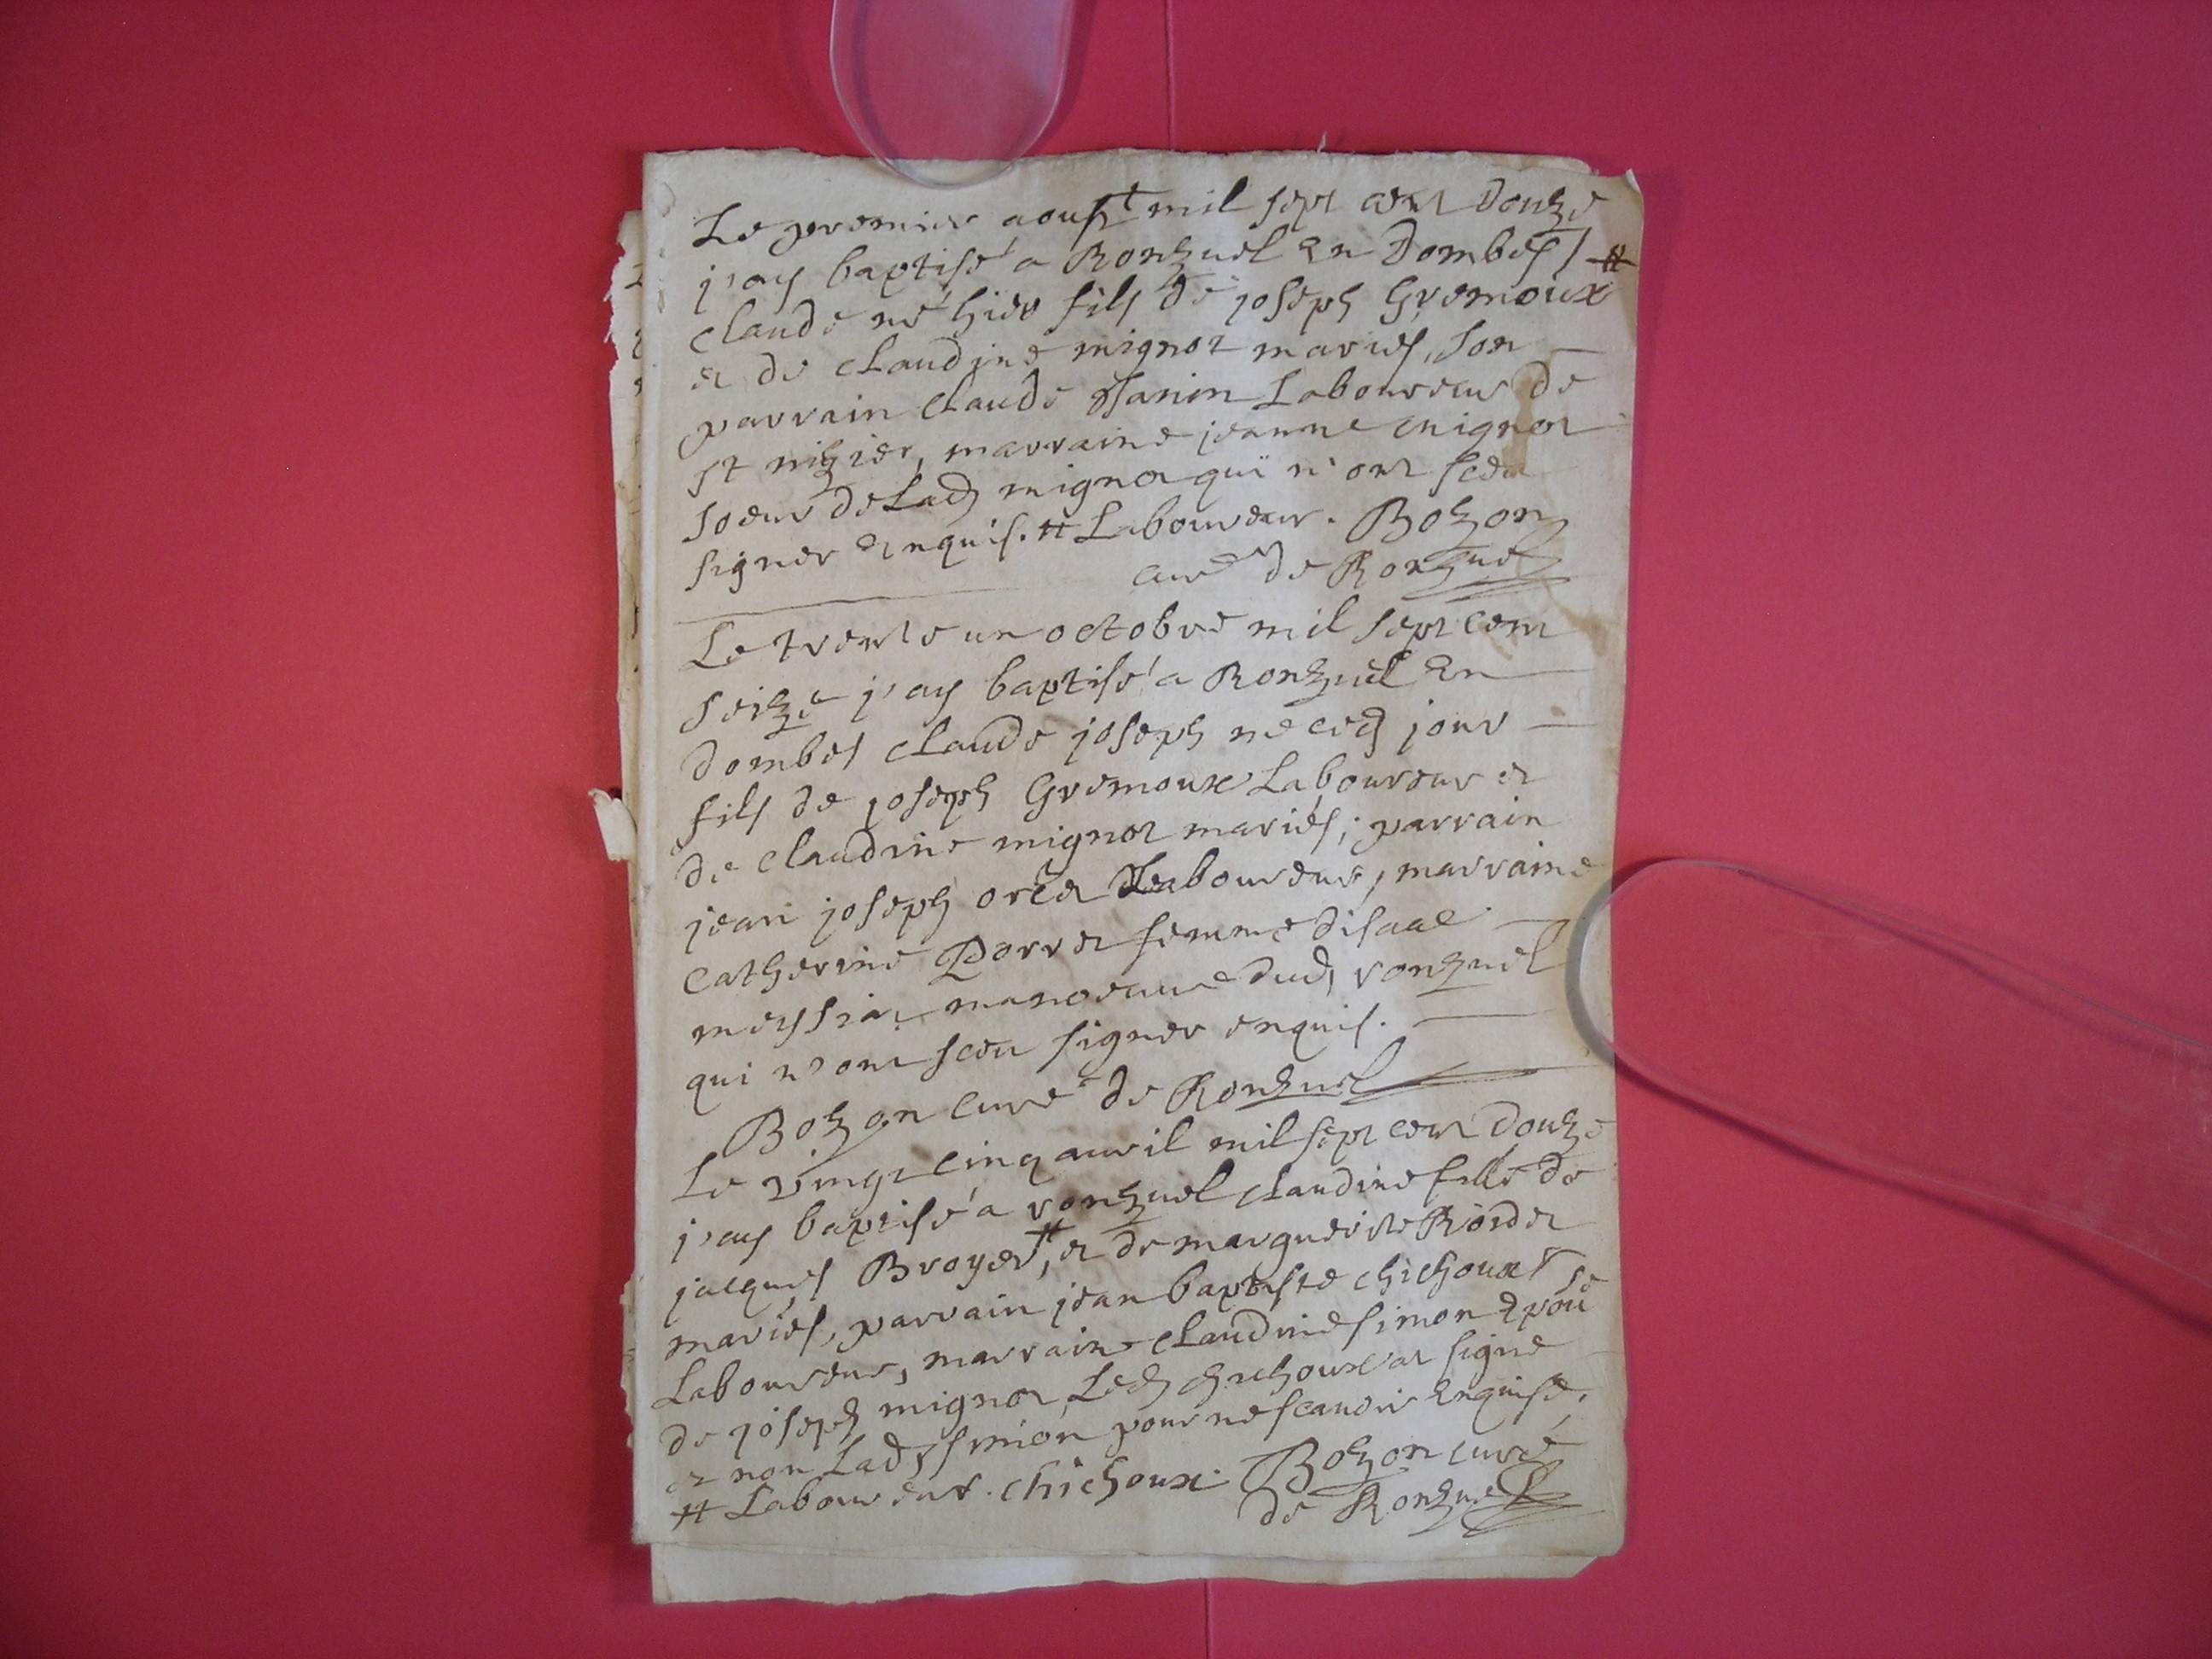 Le premier aoust mil sept cent Douze
j'ay baptisé a Ronzuel En Dombes #
claude né hier fils de joseph Gremoux
et de claudine mignot mariés, son
parrain claude Janin Laboureur De
st nizier, marraine jeanne mignot
soeur de Lad mignot qui n'ont sceu
signer Enquis. # Laboureur. Bozon
curé de Ronzuel
Le trente un octobre mil sept cent
seize j'ay baptisé a Ronzuel En
dombes claude joseph né ced jour
fils de joseph Gremoux Laboureur et
de claudine mignot mariés; parrain
jean joseph Laboureur, marraine
catherine femme disaac
manoeuvre dud ronzuel
qui n'ont sceu signer enquis.
Bozon curé de Ronzuel
Le vingt cinq auril mil sept cent douze
j'ay baptisé a ronzuel claudine fille de
jacques Broyer,# et de marguerite
mariés, parrain jean baptiste chichoux
Laboureur, marraine claudine simon Epouse
de joseph mignot, Led chichoux at signé
et non Lad simon pour ne scauoir Enquise.
# Laboureur. chichoux. Bozon curé
de Ronzuel